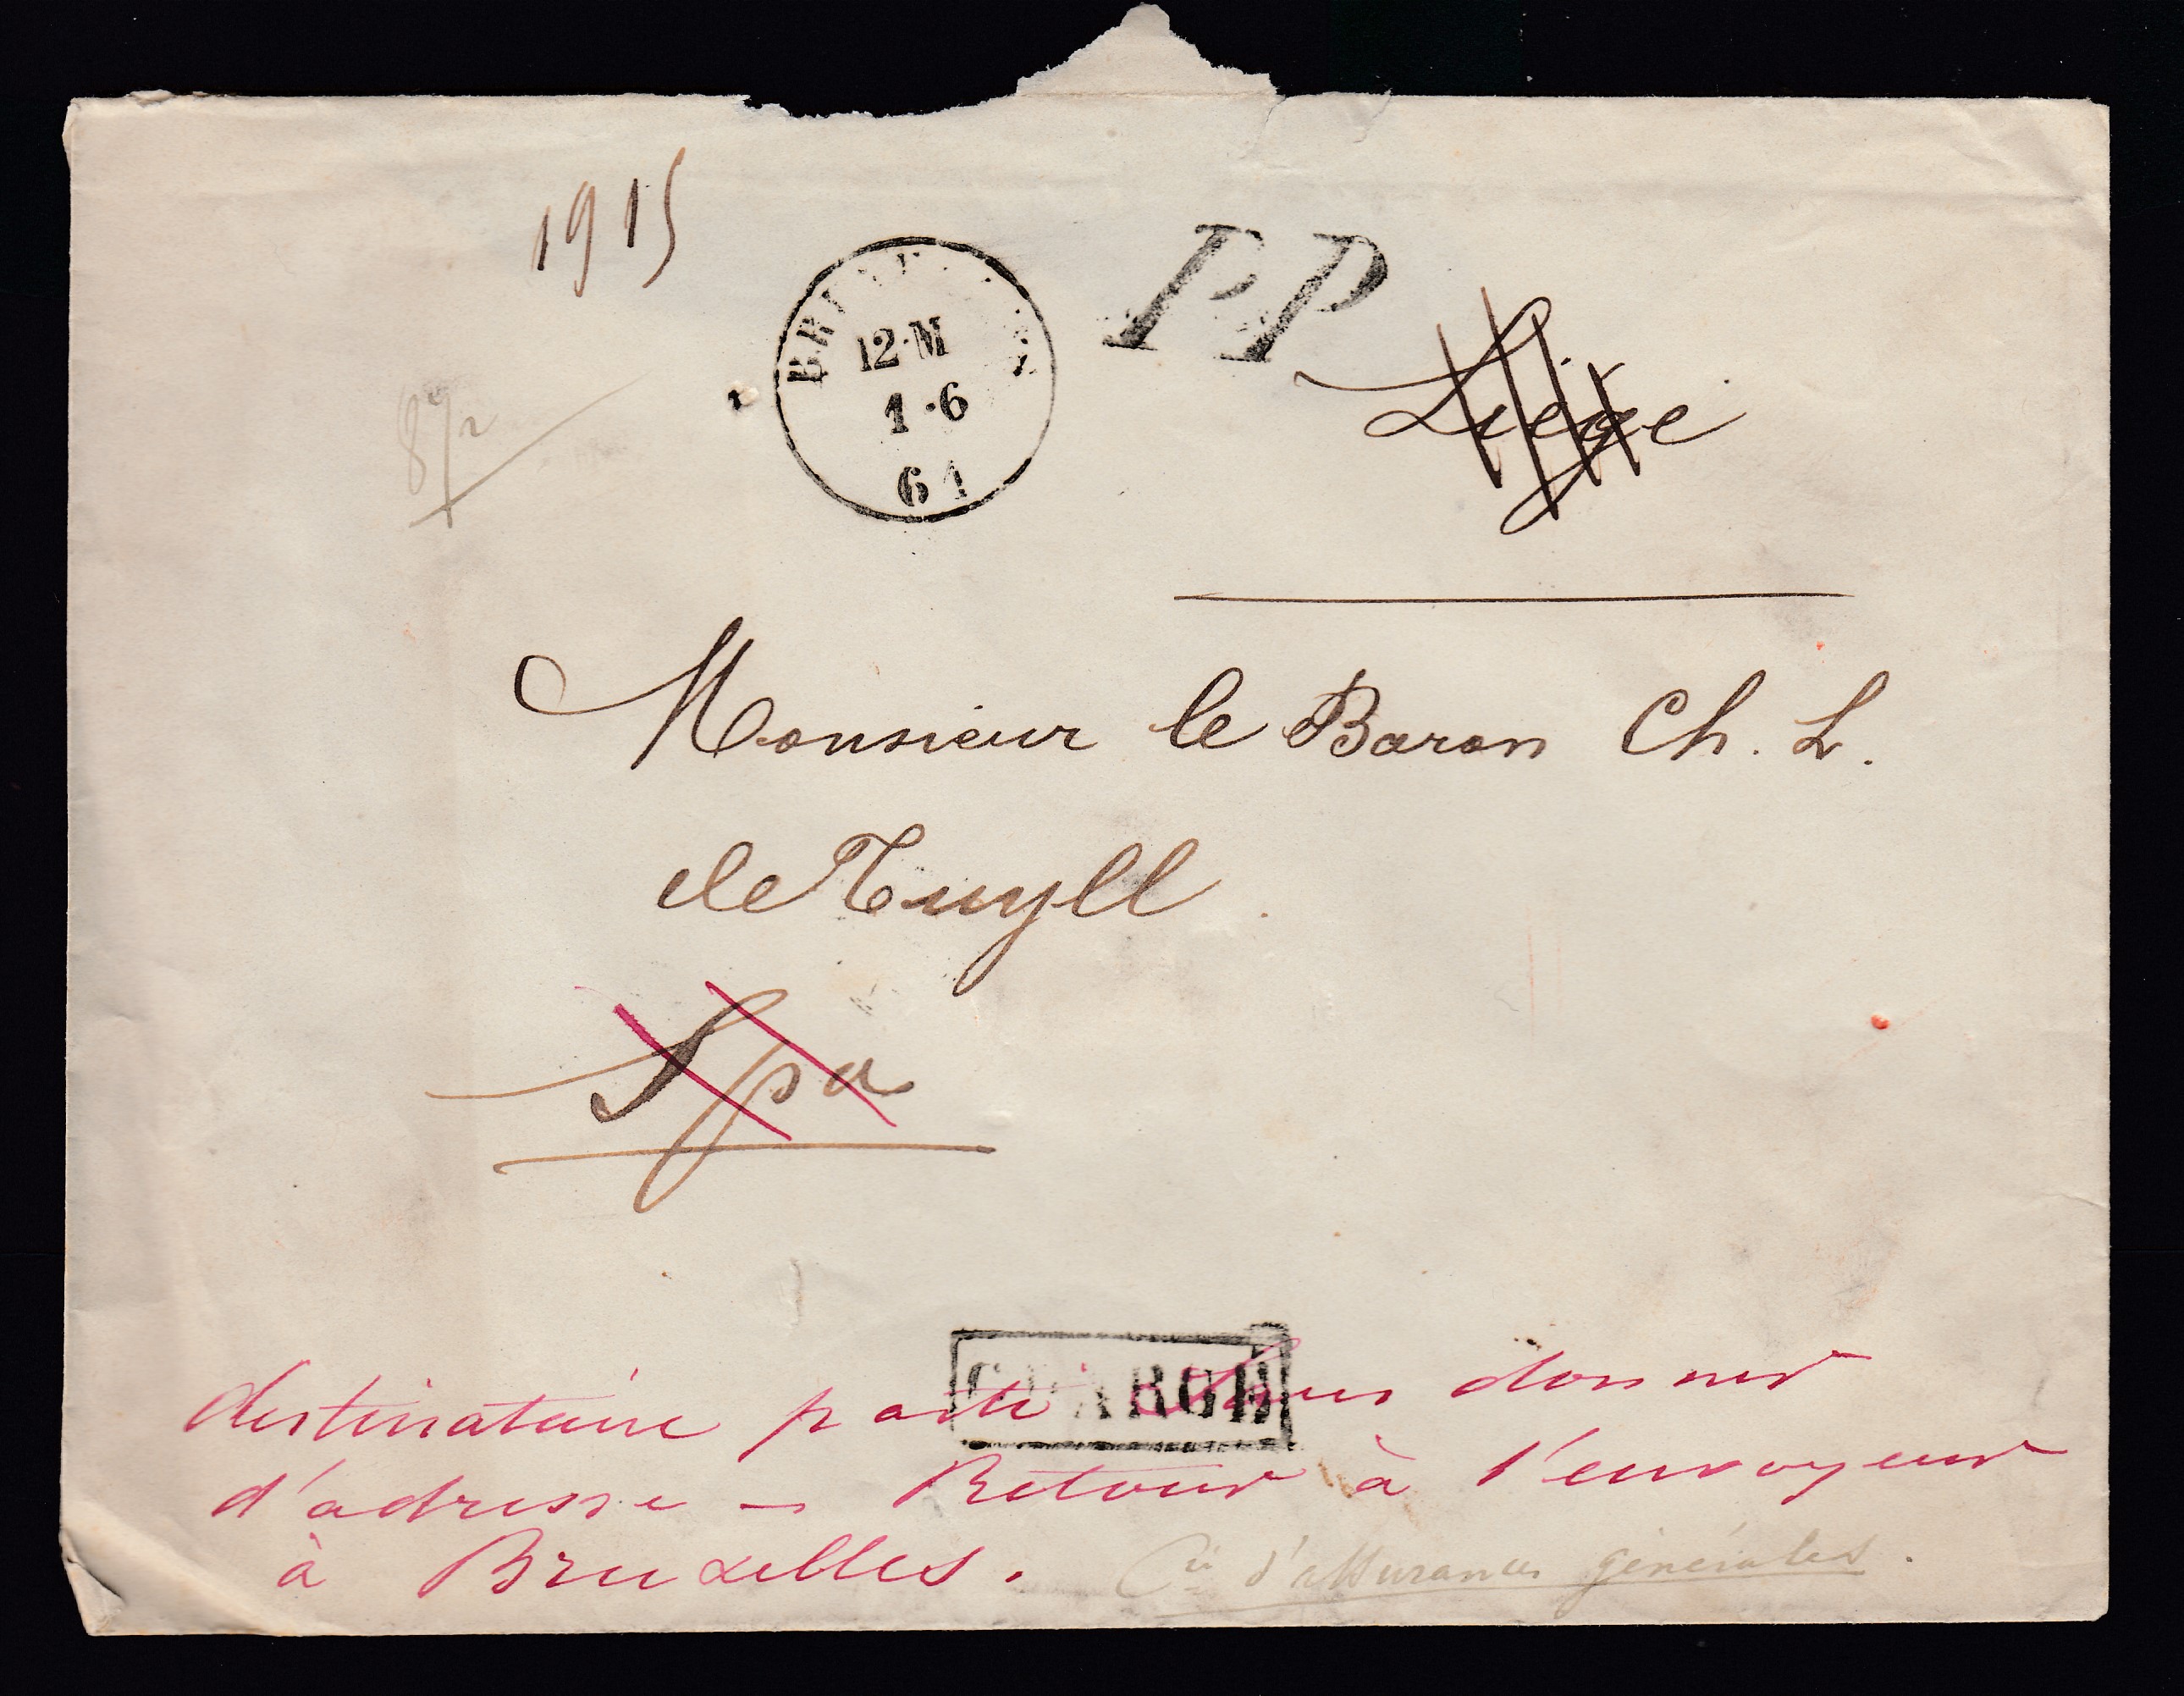 1915
PP
12·M
1·6
61
Liège
87
Monsieur le Baron Ch. L.
de Tuyll.
Spa
CHARGÉ
destinataire parti sans donner
d'adresse – Retour à l'envoyeur
à Bruxelles.
Cie d'assurances générales.